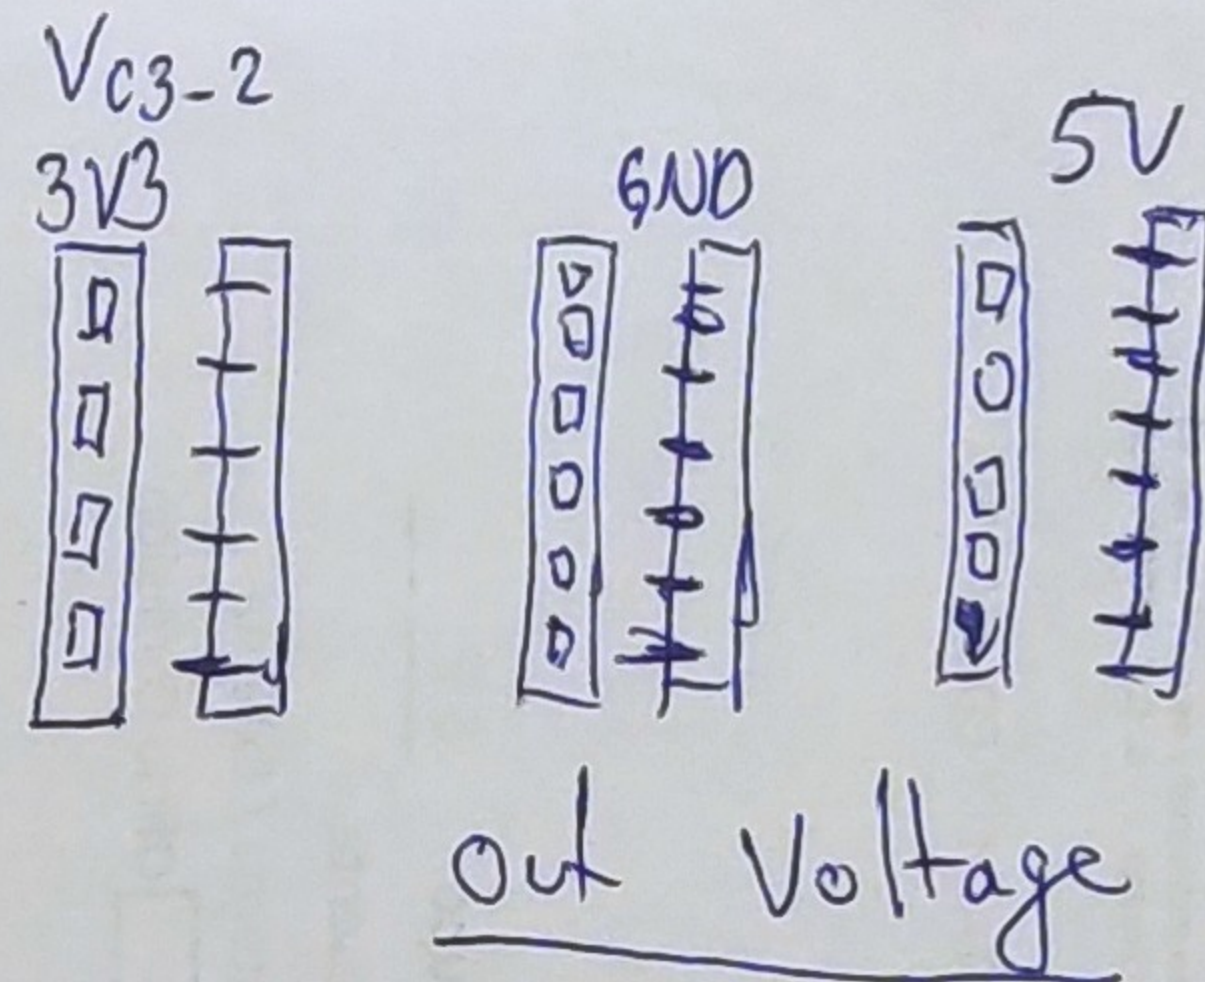 Vc3-2
3V3
GND
5V
Out Voltage